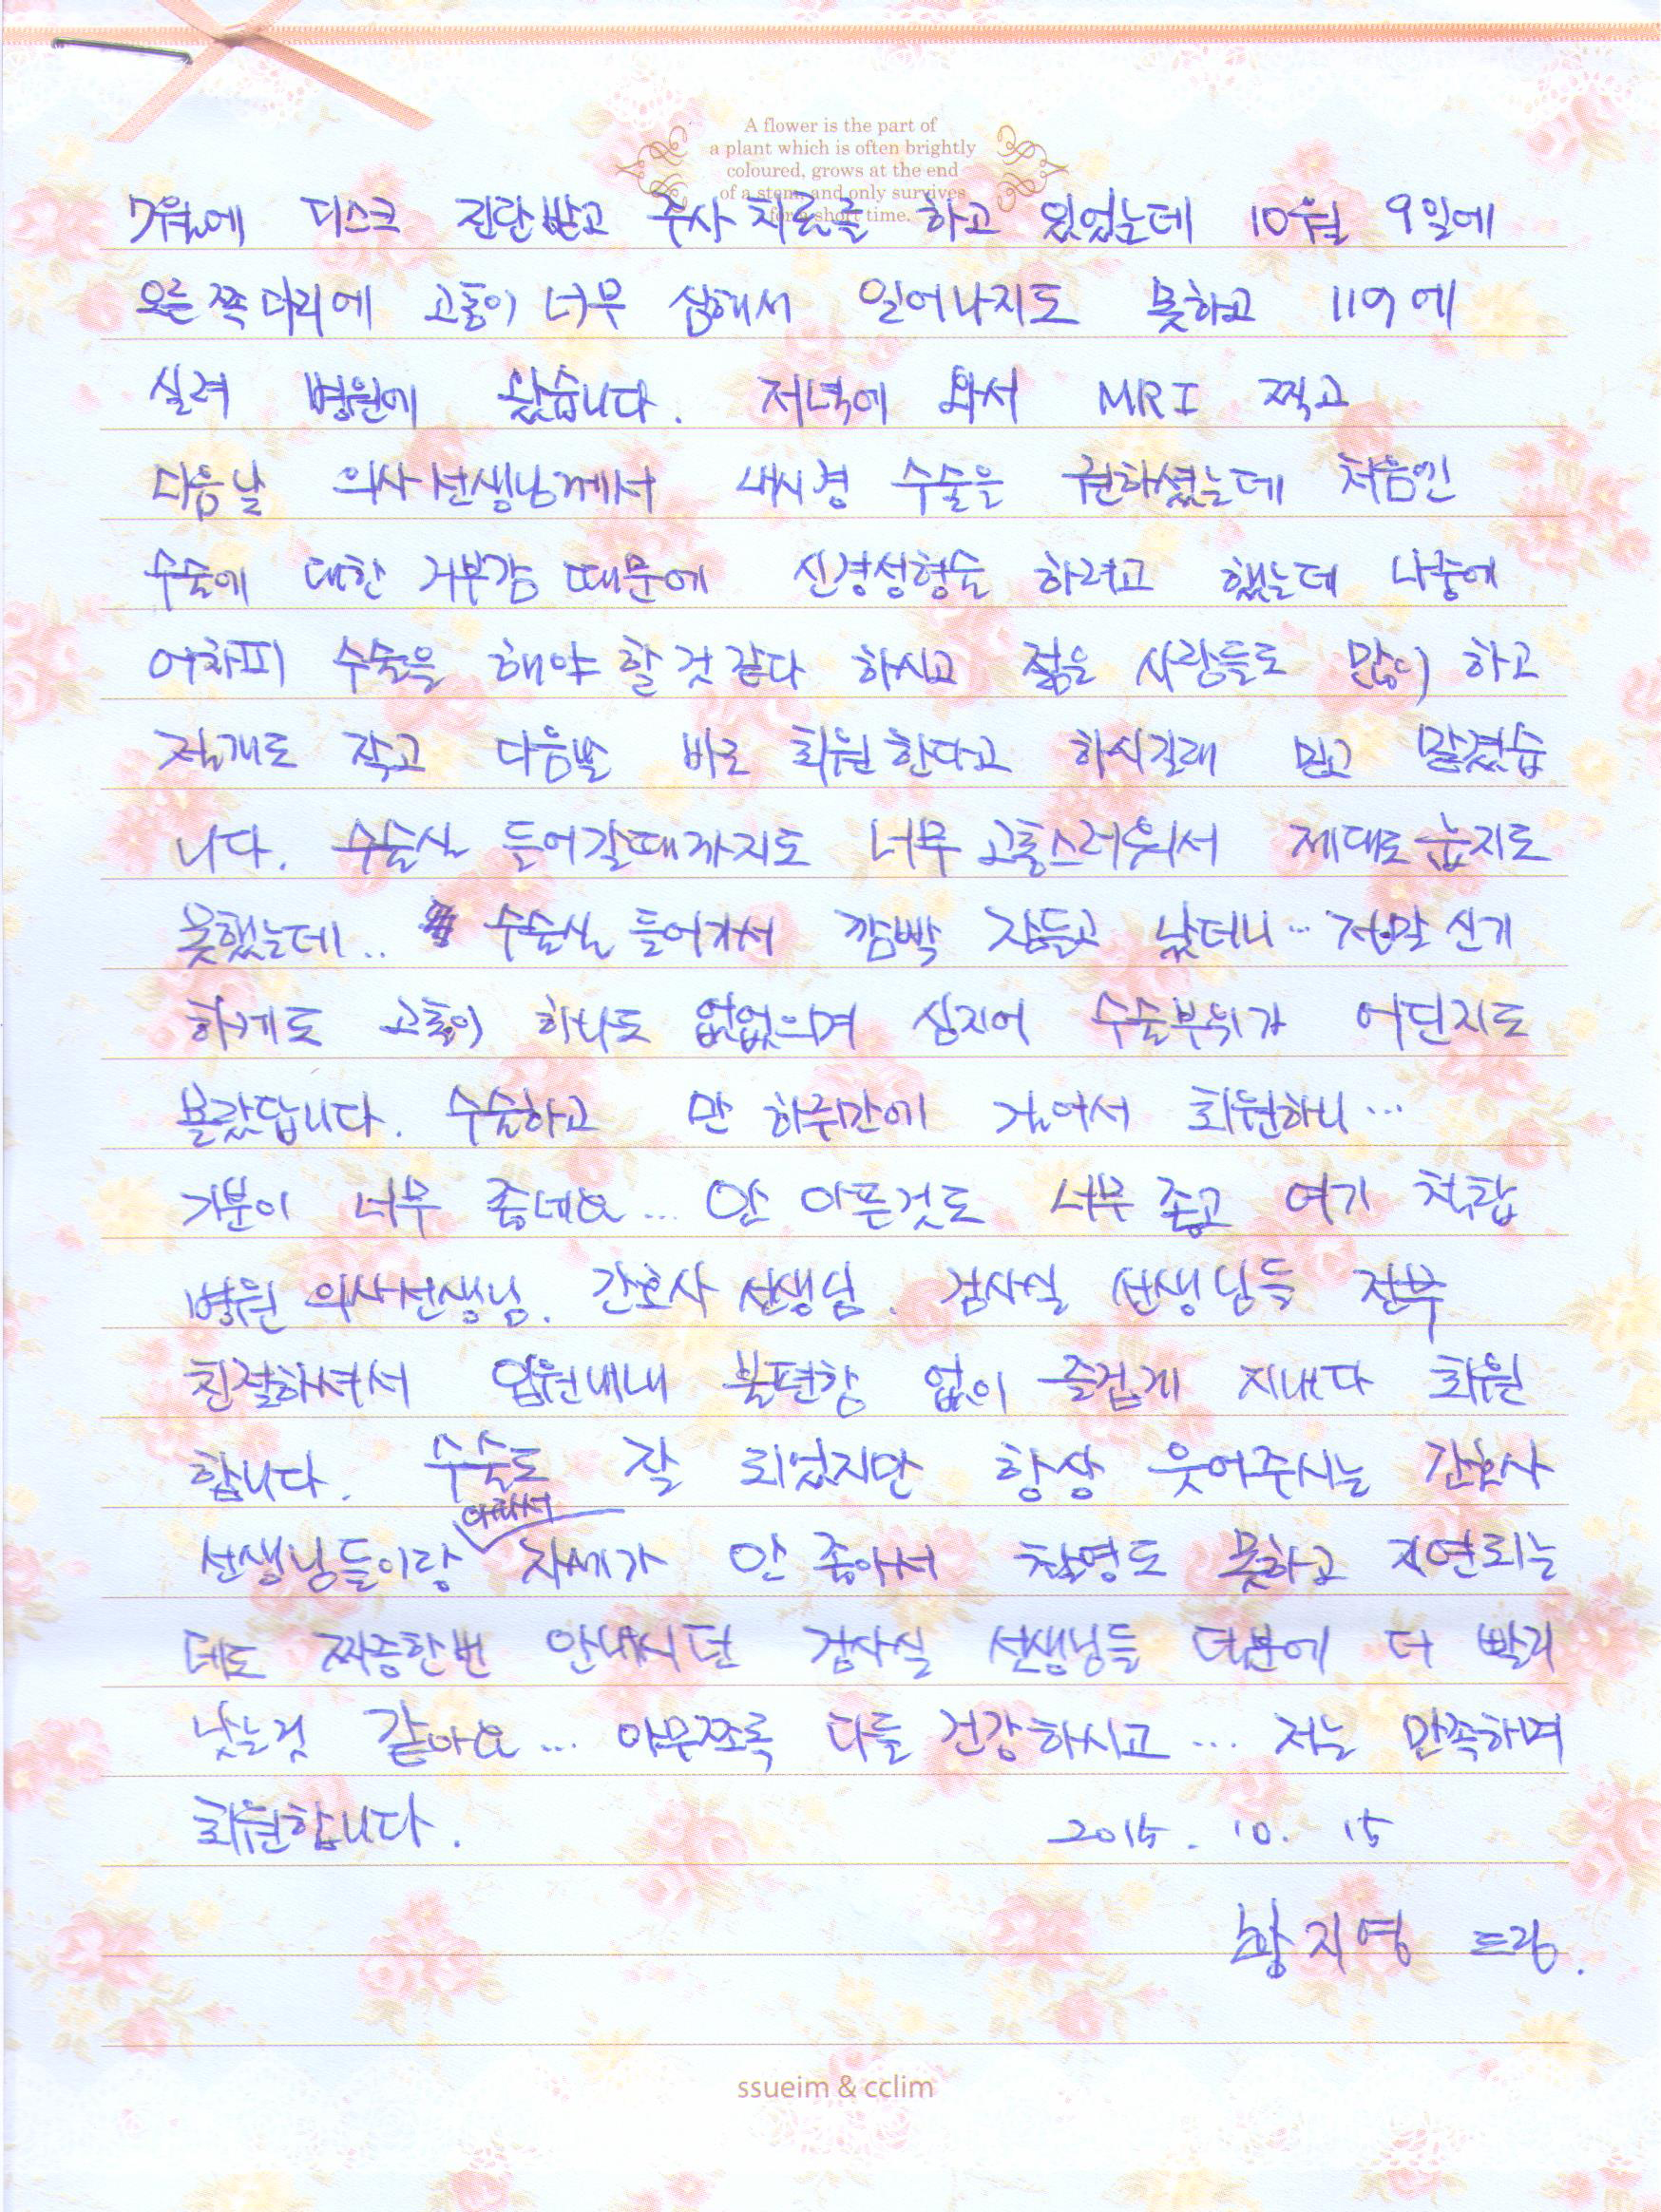 A flower is the part of
a plant which is often brightly
coloured, grows at the end
of a stem, and only survives
for a short time.
7월에 디스크 진단받고 주사치료를 하고 있었는데 10월 9일에
오른쪽다리에 고통이 너무 심해서 일어나지도 못하고 119에
실려 병원에 왔습니다. 저녁에 와서 MRI 찍고
다음날 의사선생님께서 내시경 수술을 권하셨는데 처음인
수술에 대한 거부감 때문에 신경성형술 하려고 했는데 나중에
어차피 수술을 해야 할것같다 하시고 젊은 사람들도 많이 하고
절개도 작고 다음날 바로 퇴원한다고 하시길래 믿고 맡겼습
니다. 수술실 들어갈때까지도 너무 고통스러워서 제대로 눕지도
못했는데.. 수술실 들어가서 깜빡 잠들고 났더니... 정말 신기
하게도 고통이 하나도 없었으며 심지어 수술부위가 어딘지도
몰랐답니다. 수술하고 만 하루만에 걸어서 퇴원하니...
기분이 너무 좋네요... 안 아픈것도 너무 좋고 여기 척탑
병원 의사선생님. 간호사 선생님. 검사실 선생님들 전부
친절하셔서 입원내내 불편함 없이 즐겁게 지내다 퇴원
합니다. 수술도 잘 되었지만 항상 웃어주시는 간호사
선생님들이랑 아파서 자세가 안 좋아서 촬영도 못하고 지연되는
데도 짜증한번 안내시던 검사실 선생님들 덕분에 더 빨리
낫는것 같아요... 아무쪼록 다들 건강하시고... 저는 만족하며
퇴원합니다. 2015. 10. 15
황지영 드림.
ssueim & cclim